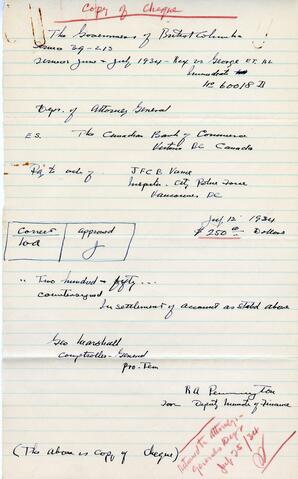 Copy of Cheque
The Government of British Columbia
29-213
services June - July 1934 - Rex vs George et al
No 60018 D
Dept. of Attorney General
The Canadian Bank of Commerce
Victoria BC Canada
Pay to order of J F C B Vance
Inspector City Police Force
Vancouver, BC
July 12 1934
$250.00 Dollars
Correct
approved
Two hundred - fifty...
countersigned
In settlement of account as stated above
Geo Marshall
Comptroller-General
pro-tem
RA Pennington
Deputy Minister of Finance
Returned to Attorney-
General's Dept
July 25/34
(The above is copy of cheque)